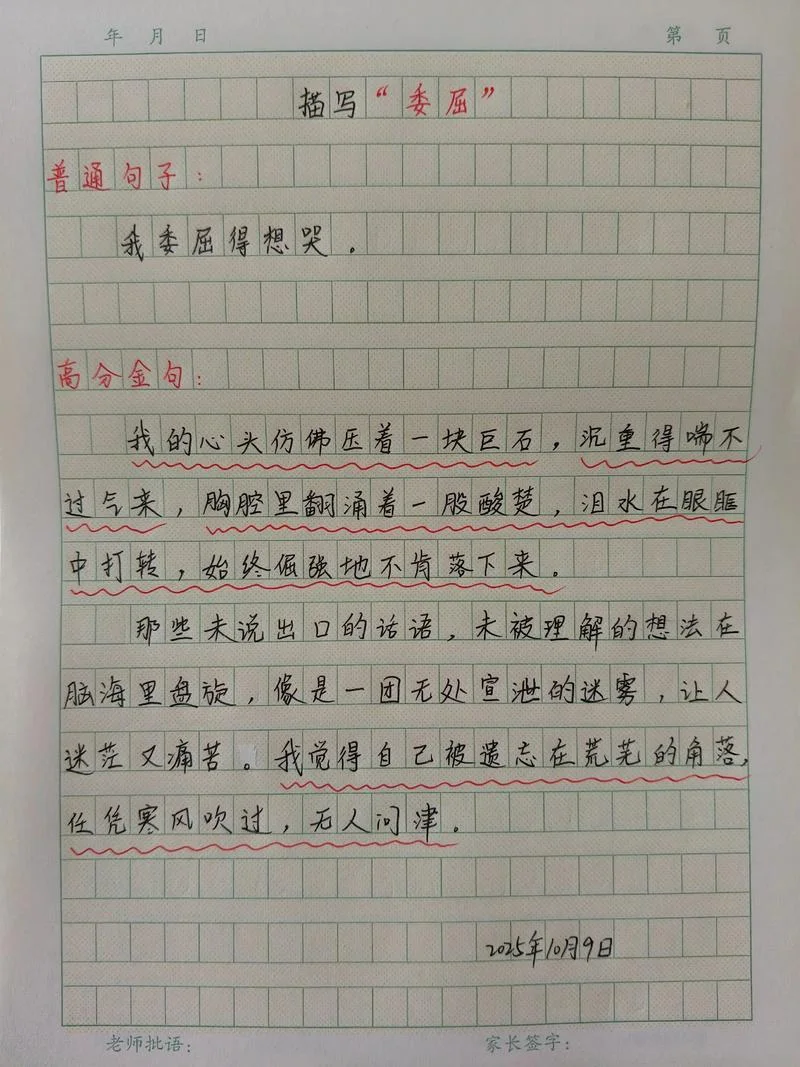 年 月 日 第 页
描写“委屈”
普通句子：
我委屈得想哭。
高分金句：
我的心头仿佛压着一块巨石，沉重得喘不
过气来，胸腔里翻涌着一股酸楚，泪水在眼眶
中打转，始终倔强地不肯落下来。
那些未说出口的话语，未被理解的想法在
脑海里盘旋，像是一团无处宣泄的迷雾，让人
迷茫又痛苦。我觉得自己被遗忘在荒芜的角落，
任凭寒风吹过，无人问津。
2025年10月9日
老师批语： 家长签字：